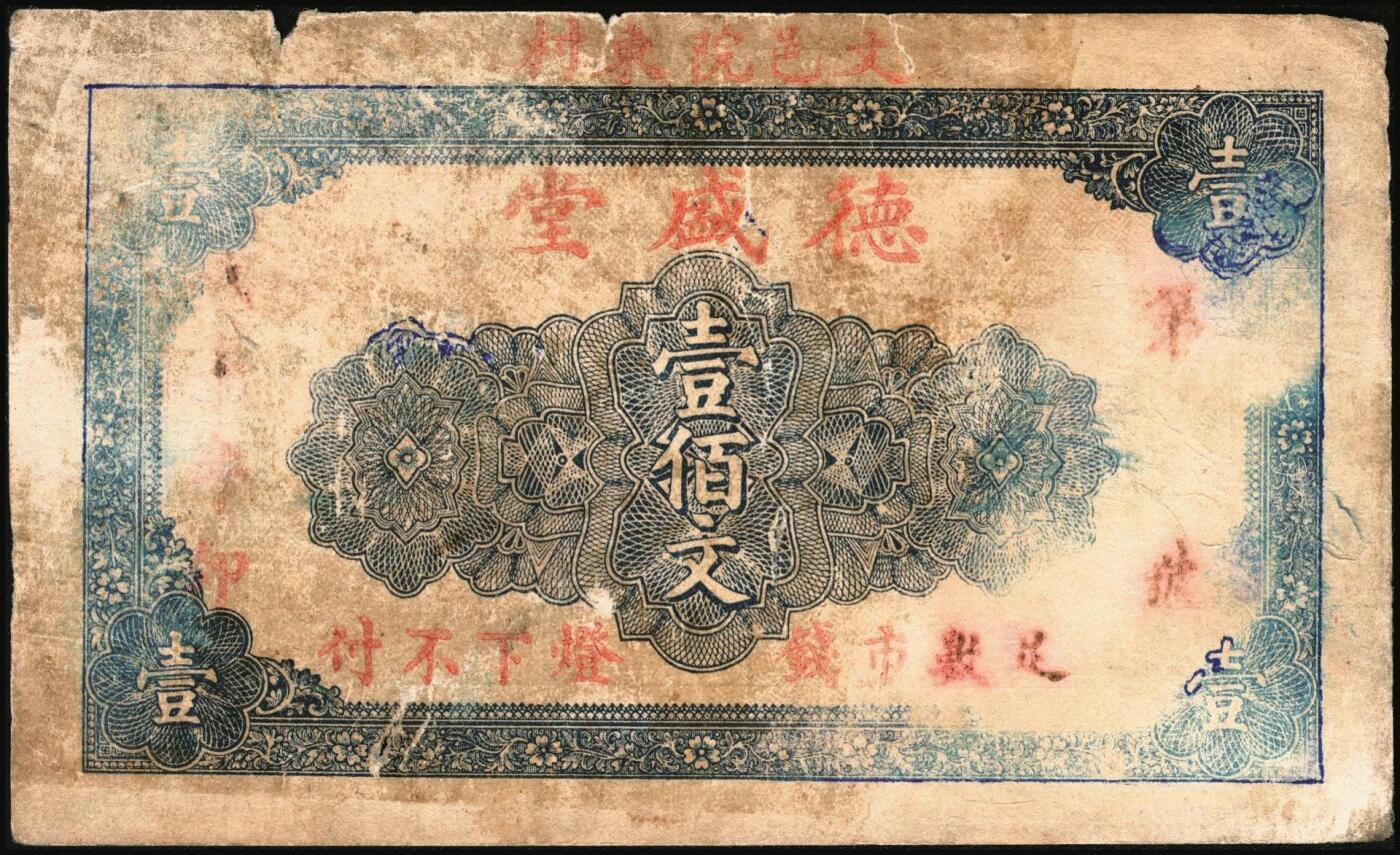 文邑院東村
壹
壹
德盛堂
第
號
壹佰文
印
足數市錢 燈下不付
壹
壹